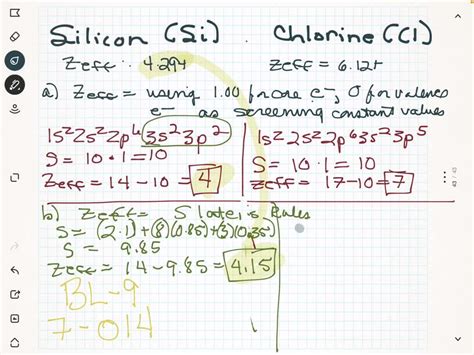 Silicon (Si)
Chlorine (Cl)
Zeff : 4.29+
Zeff = 6.12+
a) Zeff = using 1.00 for core e-, 0 for valence
e- as screening constant values
1s²2s²2p⁶3s²3p²
1s²2s²2p⁶3s²3p⁵
S = 10 · 1 = 10
S = 10 · 1 = 10
Zeff = 14 - 10 = 4
Zeff = 17 - 10 = 7
b) Zeff = Slater's Rules
S = (2·1) + (8)(0.85) + (3)(0.35)
S = 9.85
Zeff = 14 - 9.85 = 4.15
BL-9
7-014